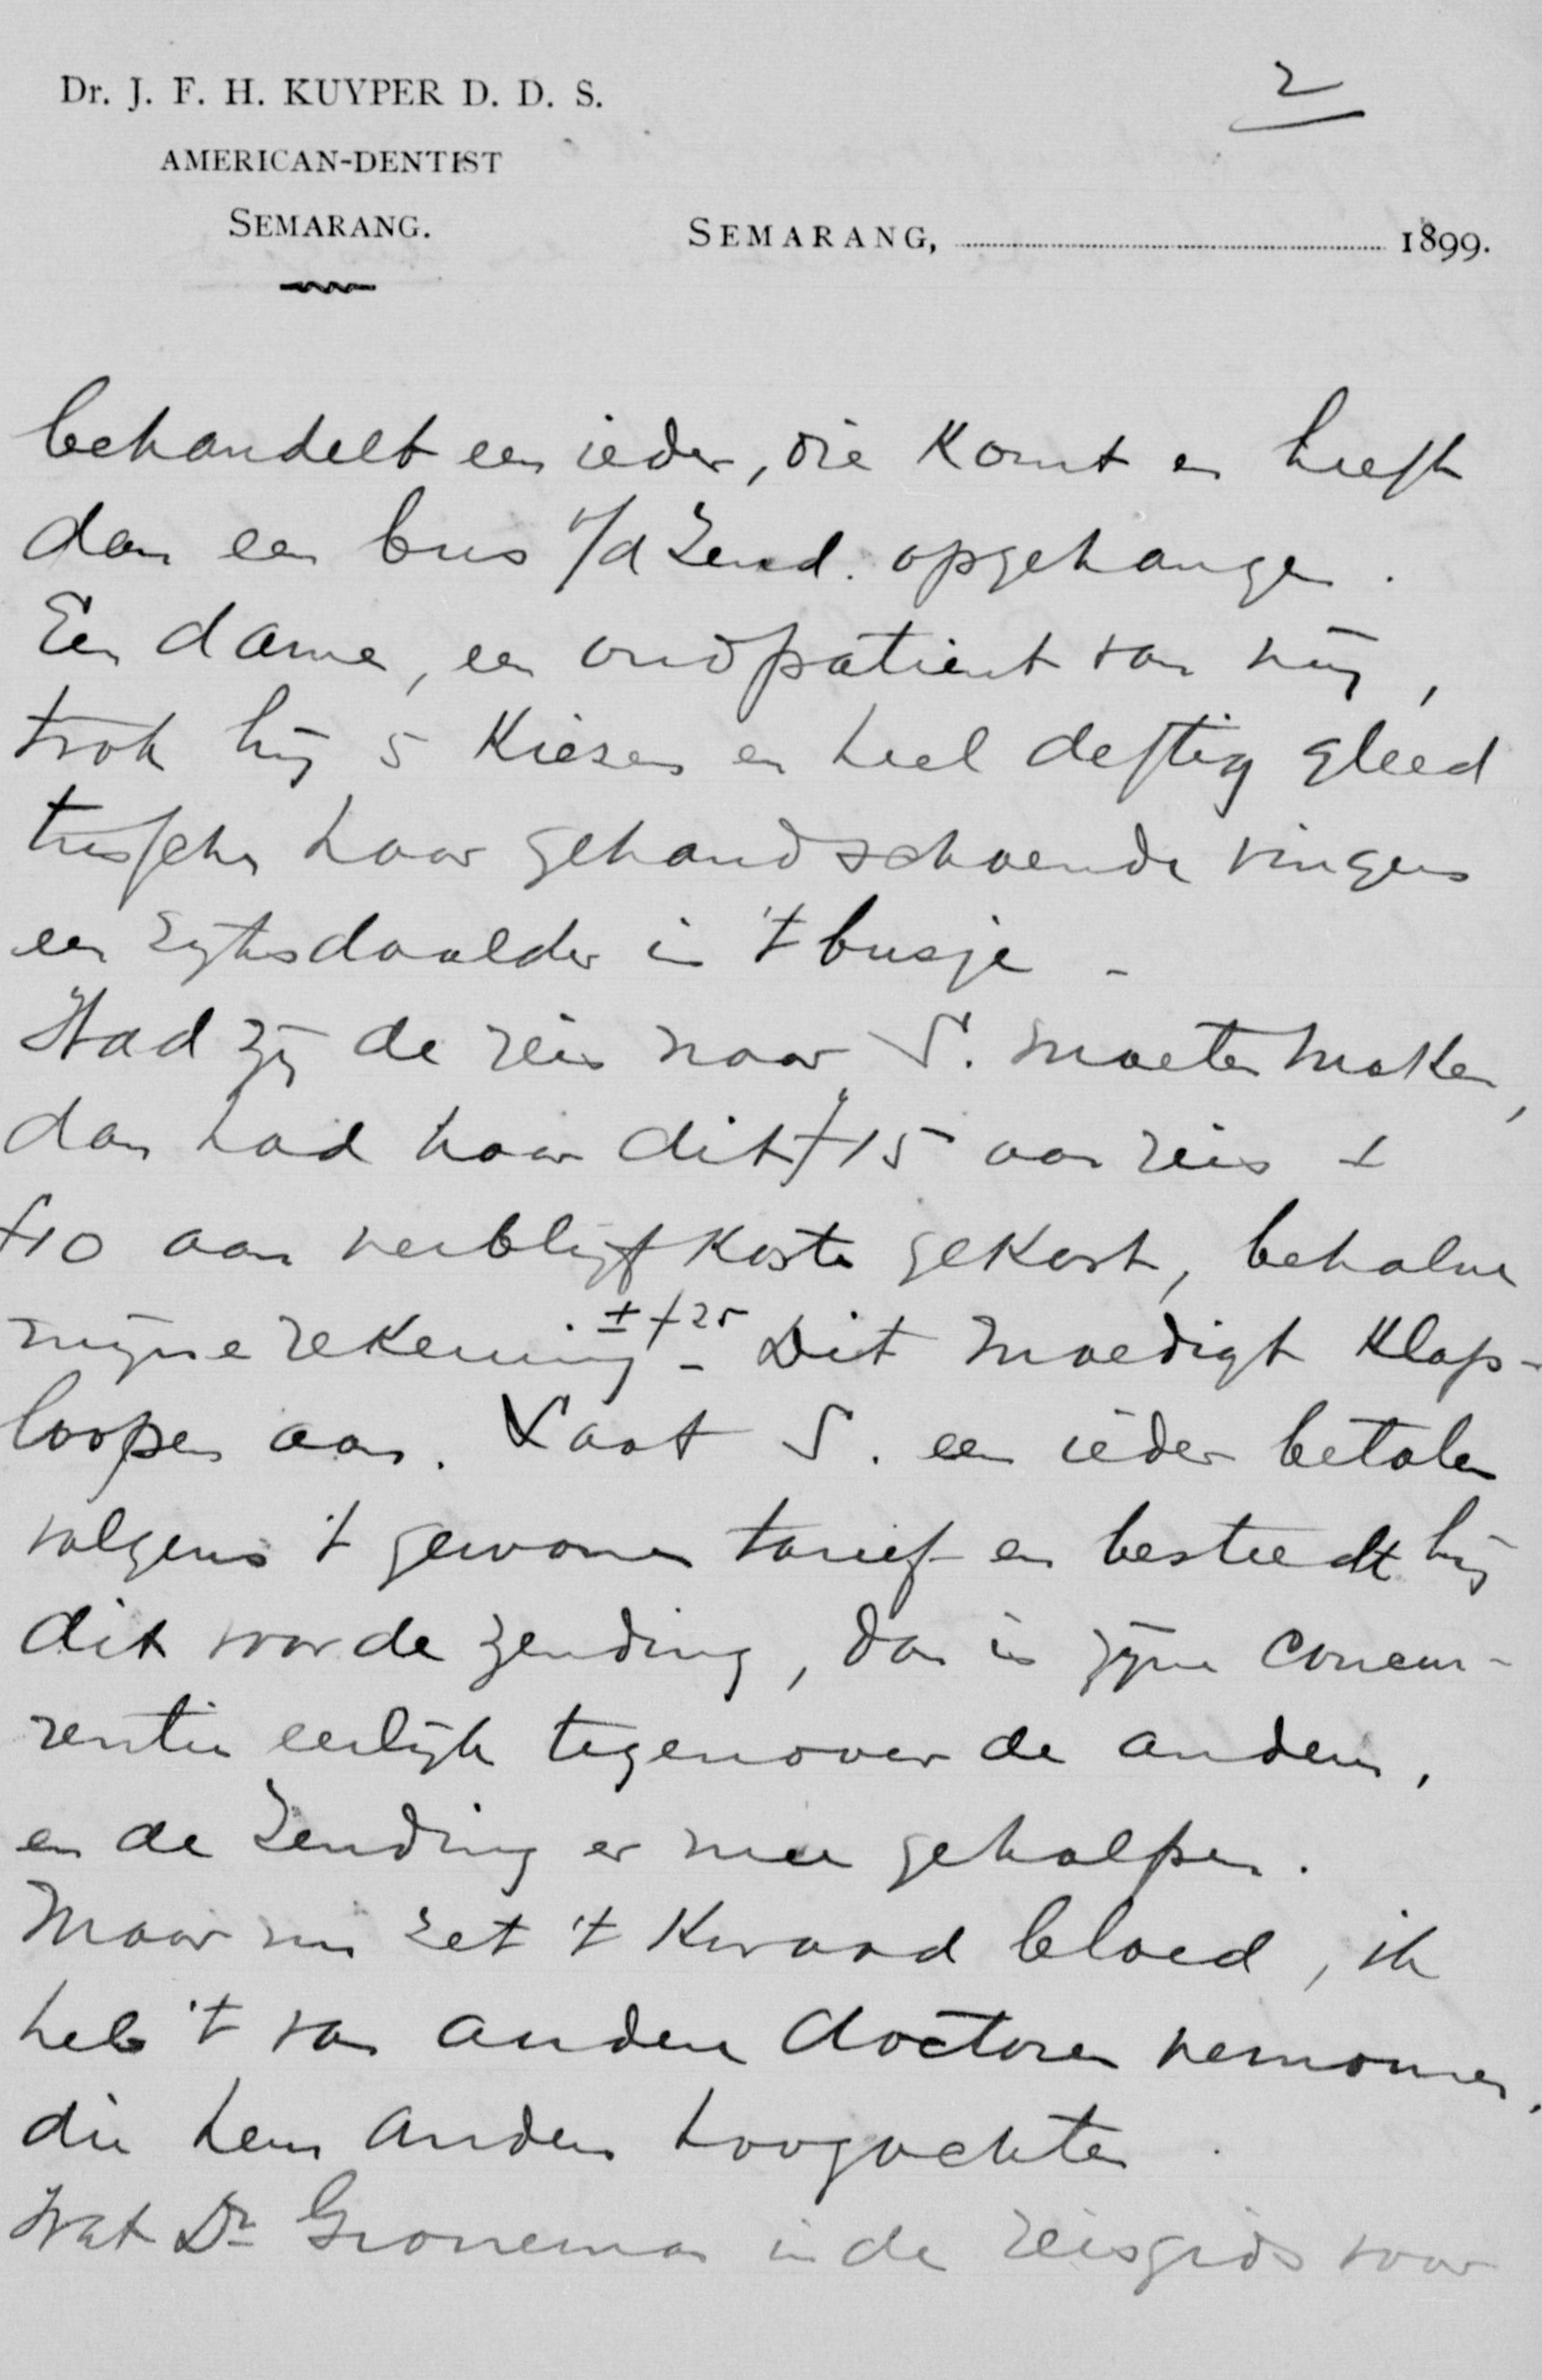 Dr. J. F. H. KUYPER D. D. S.
AMERICAN-DENTIST
SEMARANG.
2
SEMARANG, 1899.
behandelt een ieder, die komt en heeft
dan een bus v/d Zend. opgehangen.
Een dame, een oudpatient van mij,
trok hij 5 kiezen en heel deftig gleed
tusschen haar gehandschoende vingers
een rijksdaalder in 't busje -
Had zij de reis naar S. moeten maken,
dan had haar dit f15 aan reis +
f10 aan verblijfkosten gekost, behalve
mijne rekening ± f25 - Dit moedigt klap-
loopen aan. Laat S. een ieder betalen
volgens 't gewone tarief en besteedt hij
dit voor de zending, dan is zijne concur-
rentie eerlijk tegenover de andere,
en de Zending er mee geholpen.
Maar nu zet 't kwaad bloed, ik
heb 't van andere doctoren vernomen,
die hem anders hoogachten.
Wat Dr. Groneman in de reisgids voor